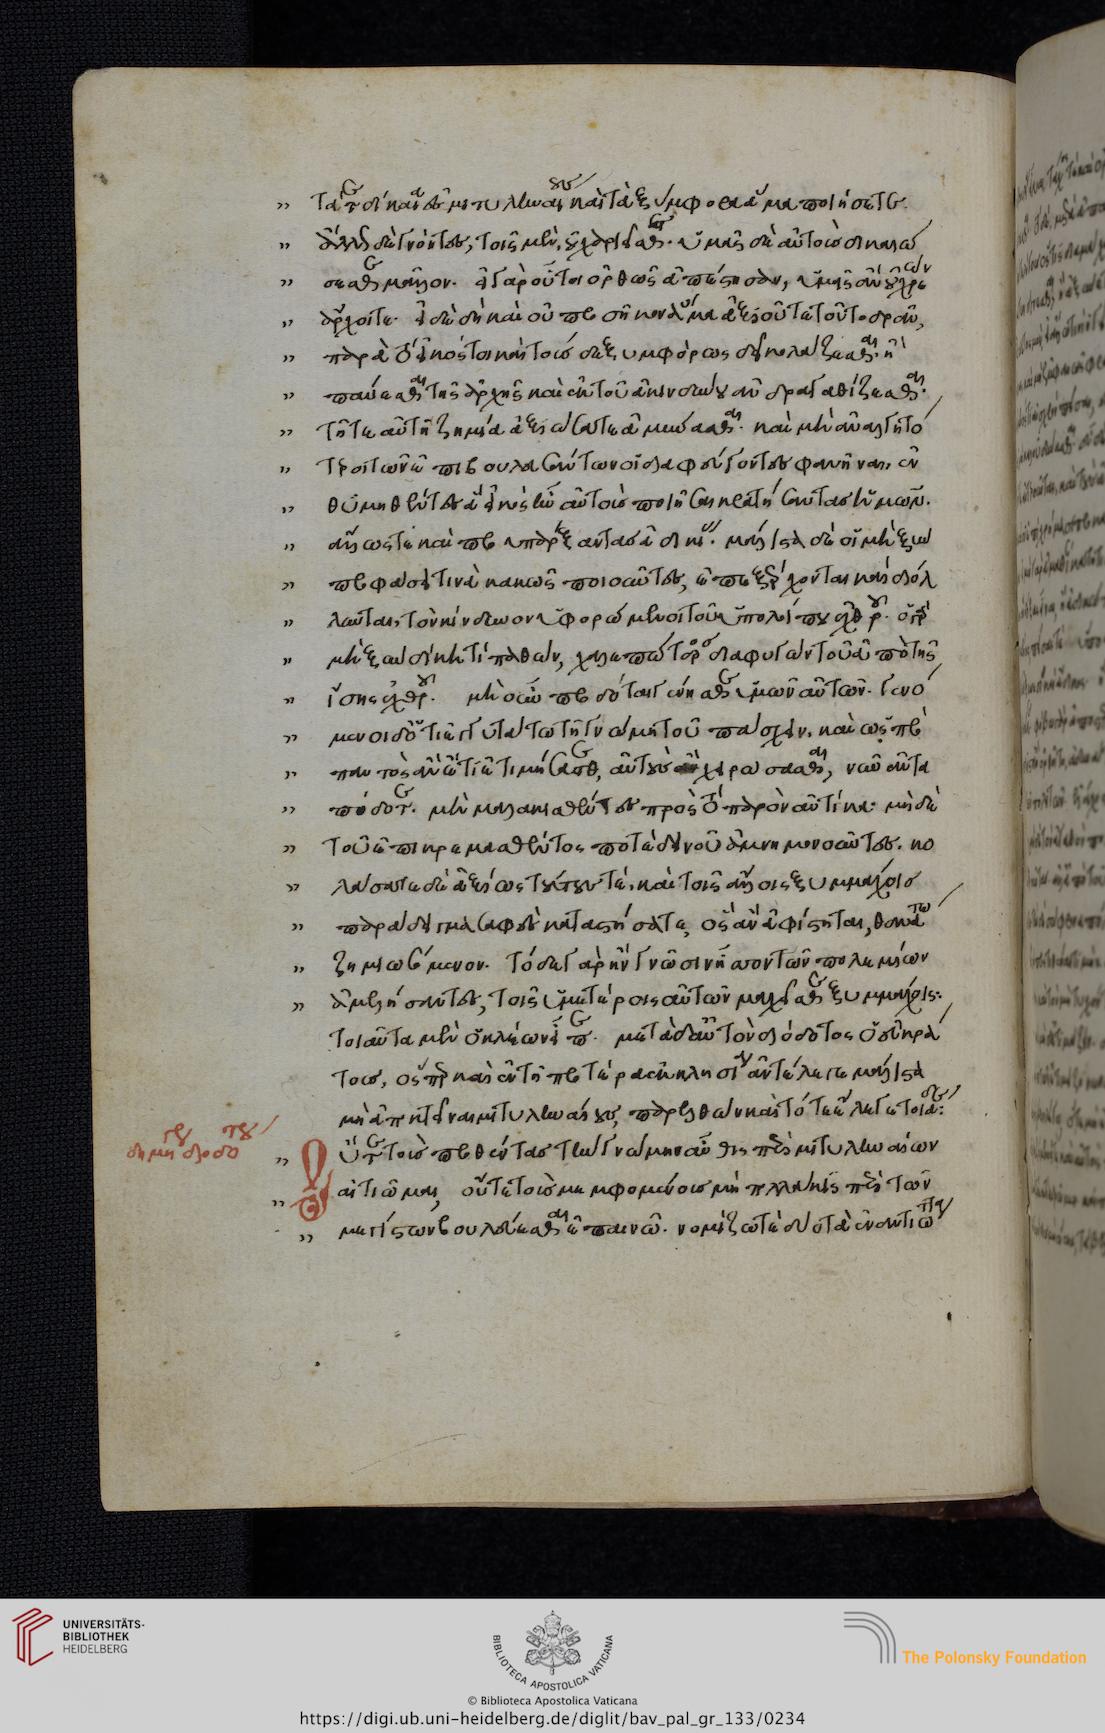 „ τά τε δίκαια ἐς μιτυληναίους καὶ τὰ ξύμφορα ἅμα ποιήσετε.
„ ἄλλως δὲ γνόντες, τοῖς μὲν οὐ χαριεῖσθε. ὑμᾶς δὲ αὐτοὺς δικαιώ
„ σεσθε μᾶλλον. εἰ γὰρ οὗτοι ὀρθῶς ἀπέστησαν, ὑμεῖς ἂν οὐ χρεὼν
„ ἄρχοιτε. εἰ δὲ δὴ καὶ οὐ προσῆκον ὅμως ἀξιοῦτε τοῦτο δρᾶν,
„ παρὰ τὸ εἰκός τοι καὶ τούσδε ξυμφόρως δεῖ κολάζεσθαι. ἢ
„ παύεσθαι τῆς ἀρχῆς καὶ ἐκ τοῦ ἀκινδύνου ἀνδραγαθίζεσθαι.
„ τῇ τε αὐτῇ ζημίᾳ ἀξιώσατε ἀμύνασθαι. καὶ μὴ ἀναλγητό
„ τεροι τῶν ἐπιβουλευσάντων οἱ διαφεύγοντες φανῆναι, ἐν
„ θυμηθέντες ἃ εἰκὸς ἦν αὐτοὺς ποιῆσαι κρατήσαντας ὑμῶν.
„ ἄλλως τε καὶ προυπάρξαντας ἀδικίας. μάλιστα δὲ οἱ μὴ ξὺν
„ προφάσει τινὰ κακῶς ποιοῦντες, ἐπεξέρχονται καὶ διόλ
„ λυνται, τὸν κίνδυνον ὑφορώμενοι τοῦ ὑπολείπου ἐχθροῦ. ὁ γὰρ
„ μὴ ξὺν δίκῃ τί παθὼν, χαλεπώτερος διαφυγὼν τοῦ ἀπὸ τῆς
„ ἴσης ἐχθροῦ. μὴ οὖν προδόται γένησθε ὑμῶν αὐτῶν. γενό
„ μενοι δ' ὅτι ἐγγύτατω τῇ γνώμῃ τοῦ πάσχειν. καὶ ὡς πρὸ
„ παντὸς ἂν ἐτιμήσασθε, αὐτοὺς χειρώσασθαι, νῦν ἀντα
„ πόδοτε. μὴ μαλακισθέντες πρὸς τὸ παρὸν αὐτίκα· μηδὲ
„ τοῦ ἐπικρεμασθέντος ποτὲ δεινοῦ ἀμνημονοῦντες. κο
„ λάσατε δὲ ἀξίως τούτους τέ, καὶ τοῖς ἄλλοις ξυμμάχοις
„ παράδειγμα σαφὲς καταστήσατε, ὃς ἂν ἀφίστηται, θανάτω
„ ζημιωσόμενον. τόδε γὰρ ἢν γνῶσιν ἧσσον τῶν πολεμίων
„ ἀμελήσαντες, τοῖς ὑμετέροις αὐτῶν μαχεῖσθε ξυμμάχοις:
τοιαῦτα μὲν ὁ κλέων εἶπε. μετὰ δ' αὐτὸν διόδοτος ὁ εὐκρά
τους, ὅσπερ καὶ ἐν τῇ προτέρα ἐκκλησίᾳ ἀντέλεγε μάλιστα
μὴ ἀποκτεῖναι μιτυληναίους, παρελθὼν καὶ τότε ἔλεγε τοιάδε:
δημηγορία διοδότου
„ Οὔτε τοὺς προθέντας τὴν γνώμην αὖθις περὶ μιτυληναίων
„ αἰτιῶμαι, οὔτε τοὺς μεμφομένους μὴ πολλάκις περὶ τῶν
„ μεγίστων βουλεύεσθαι ἐπαινῶ. νομίζω τὲ δύο τὰ ἐναντιώτα
UNIVERSITÄTS-
BIBLIOTHEK
HEIDELBERG
BIBLIOTECA APOSTOLICA VATICANA
The Polonsky Foundation
© Biblioteca Apostolica Vaticana
https://digi.ub.uni-heidelberg.de/diglit/bav_pal_gr_133/0234